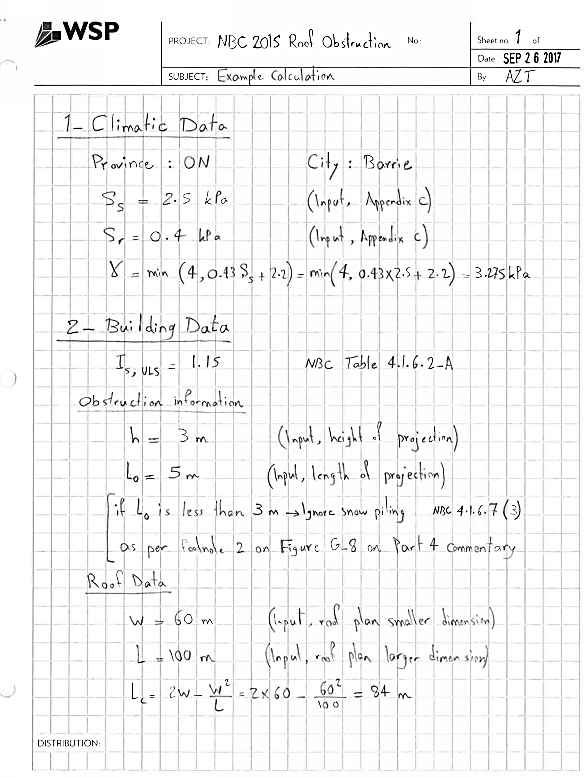 WSP
PROJECT: NBC 2015 Roof Obstruction No.:
Sheet no. 1 of
Date SEP 26 2017
SUBJECT: Example Calculation
By AZT
1- Climatic Data
Province : ON City : Barrie
Ss = 2.5 kPa (Input, Appendix C)
Sr = 0.4 kPa (Input, Appendix C)
γ = min (4, 0.43 Ss + 2.2) = min(4, 0.43×2.5 + 2.2) = 3.275 kPa
2- Building Data
Is, ULS = 1.15 NBC Table 4.1.6.2-A
Obstruction information
h = 3 m (Input, height of projection)
Lo = 5 m (Input, length of projection)
if Lo is less than 3 m → Ignore snow piling NBC 4.1.6.7 (3)
as per Footnote 2 on Figure G-8 on Part 4 Commentary
Roof Data
W = 60 m (Input, roof plan smaller dimension)
L = 100 m (Input, roof plan larger dimension)
Lc = 2W - W²/L = 2×60 - 60²/100 = 84 m
DISTRIBUTION: